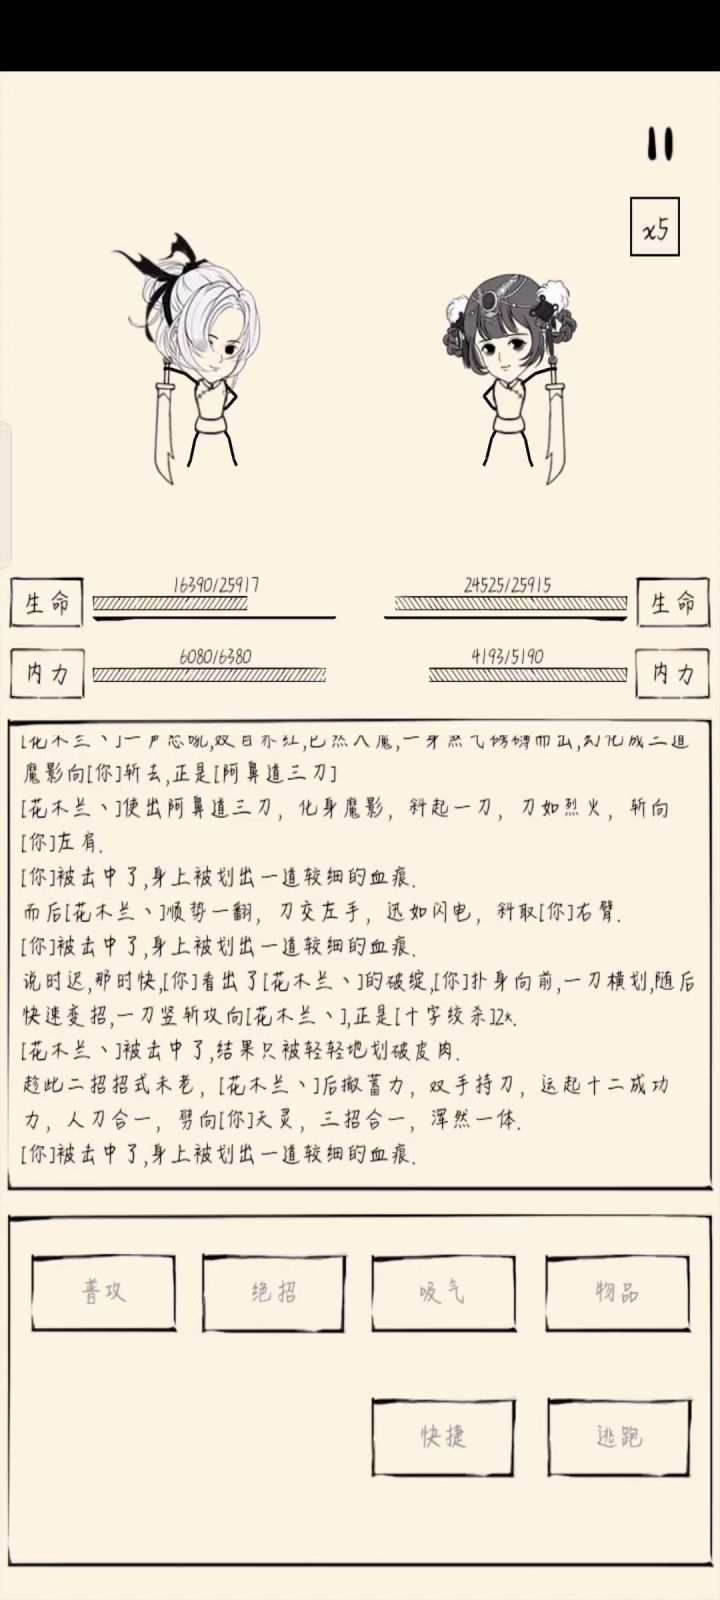 x5
16390/25917
24525/25915
生命
生命
6080/6380
4193/5190
内力
内力
[花木兰丶]一声怒吼,双目赤红,已然入魔,一身煞气磅礴而出,幻化成三道
魔影向[你]斩去,正是[阿鼻道三刀]
[花木兰丶]使出阿鼻道三刀，化身魔影，斜起一刀，刀如烈火，斩向
[你]左肩.
[你]被击中了,身上被划出一道较细的血痕.
而后[花木兰丶]顺势一翻，刀交左手，迅如闪电，斜取[你]右臂.
[你]被击中了,身上被划出一道较细的血痕.
说时迟,那时快,[你]看出了[花木兰丶]的破绽,[你]扑身向前,一刀横划,随后
快速变招,一刀竖斩攻向[花木兰丶],正是[十字绞杀]2*.
[花木兰丶]被击中了,结果只被轻轻地划破皮肉.
趁此二招招式未老，[花木兰丶]后撤蓄力，双手持刀，运起十二成功
力，人刀合一，劈向[你]天灵，三招合一，浑然一体.
[你]被击中了,身上被划出一道较细的血痕.
普攻
绝招
吸气
物品
快捷
逃跑